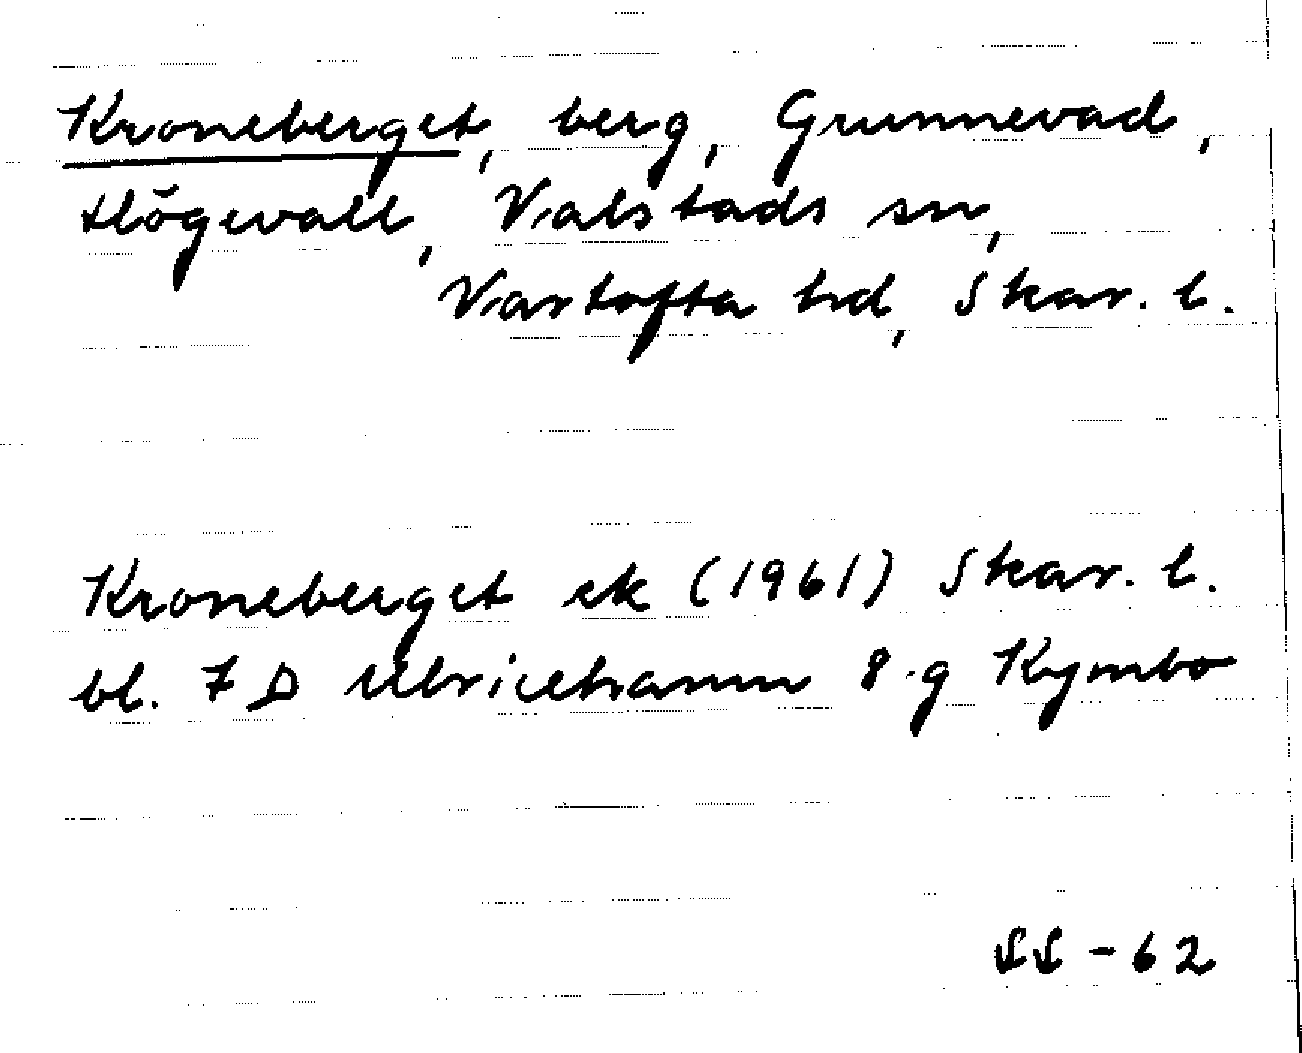 Kroneberget, berg, Grunnevad,
Högevall, Valstads sn,
Vartofta hd, Skar. l.
Kroneberget ek (1961) Skar. l.
bl. 7 D Ulricehamn 8 g Kymbo
SS - 62